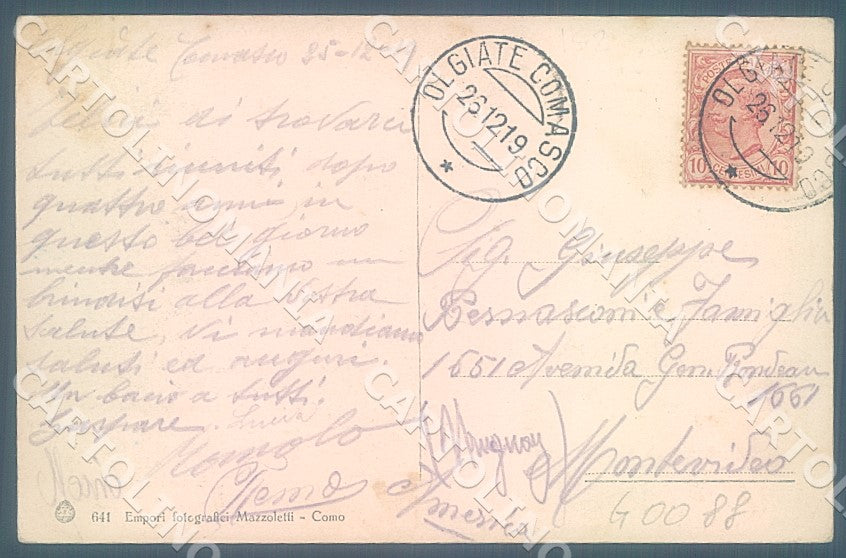 Olgiate Comasco 25-12
Felici di trovarci
tutti riuniti dopo
quattro anni in
questo bel giorno
mentre facciamo un
brindisi alla Vostra
salute, Vi mandiamo
saluti ed auguri.
Un bacio a tutti.
Gaspare. Luisa
Romolo
641 Empori fotografici Mazzoletti - Como
OLGIATE COMASCO
26.12.19
POSTE
10 CENTESIMI 10
OLGIATE COMASCO
26.12.19
Sig. Giuseppe
Bernasconi e Famiglia
1551 Avenida Gen. Rondeau
1551
Montevideo
America
G0088
CARTOLINOMANIA